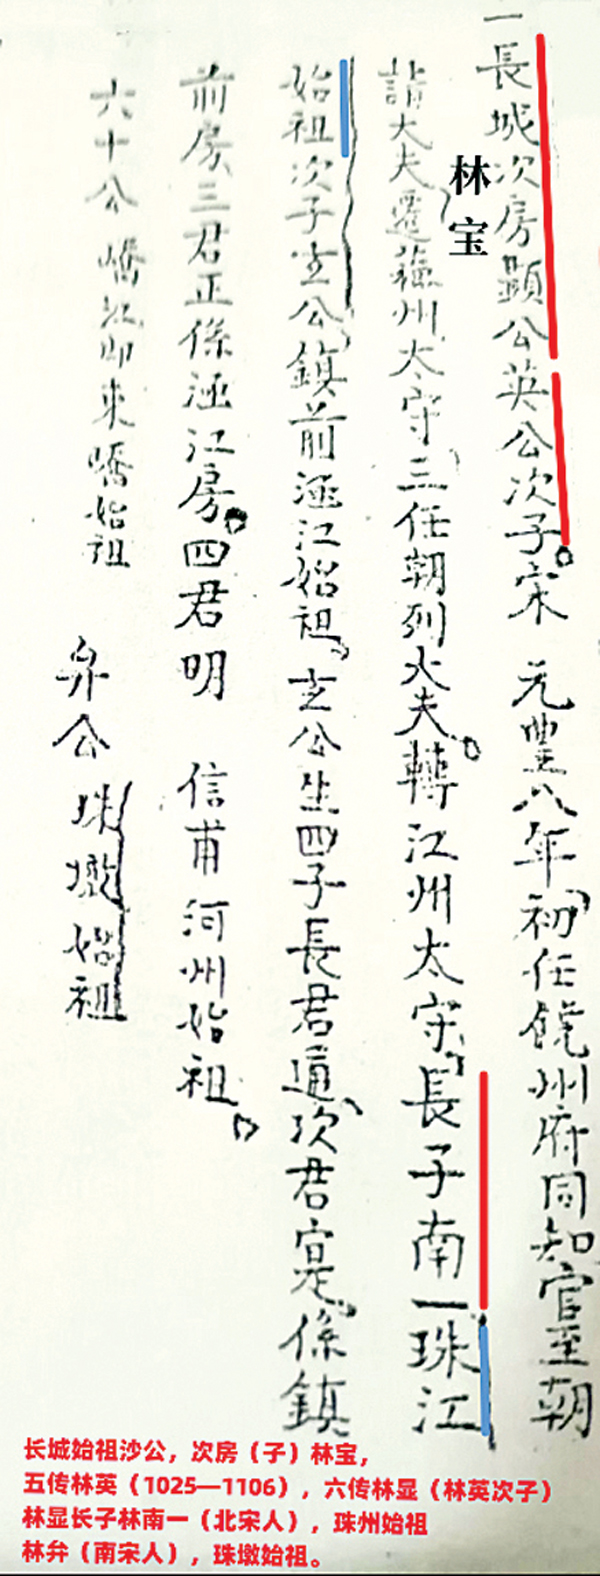 一長城次房顯公英公次子宋 元豐八年初任饒州府同知官至朝
請大夫遷蘓州太守三任朝列大夫轉江州太守長子南一珠江
始祖次子圭公鎮前涵江始祖圭公生四子長君逋次君寔係鎮
前房三君正係涵江房四君明 信甫河州始祖
六十公 嶠江即東嶠始祖
弁公 珠墩始祖
林宝
长城始祖沙公，次房（子）林宝，
五传林英（1025—1106），六传林显（林英次子）
林显长子林南一（北宋人），珠州始祖
林弁（南宋人），珠墩始祖。